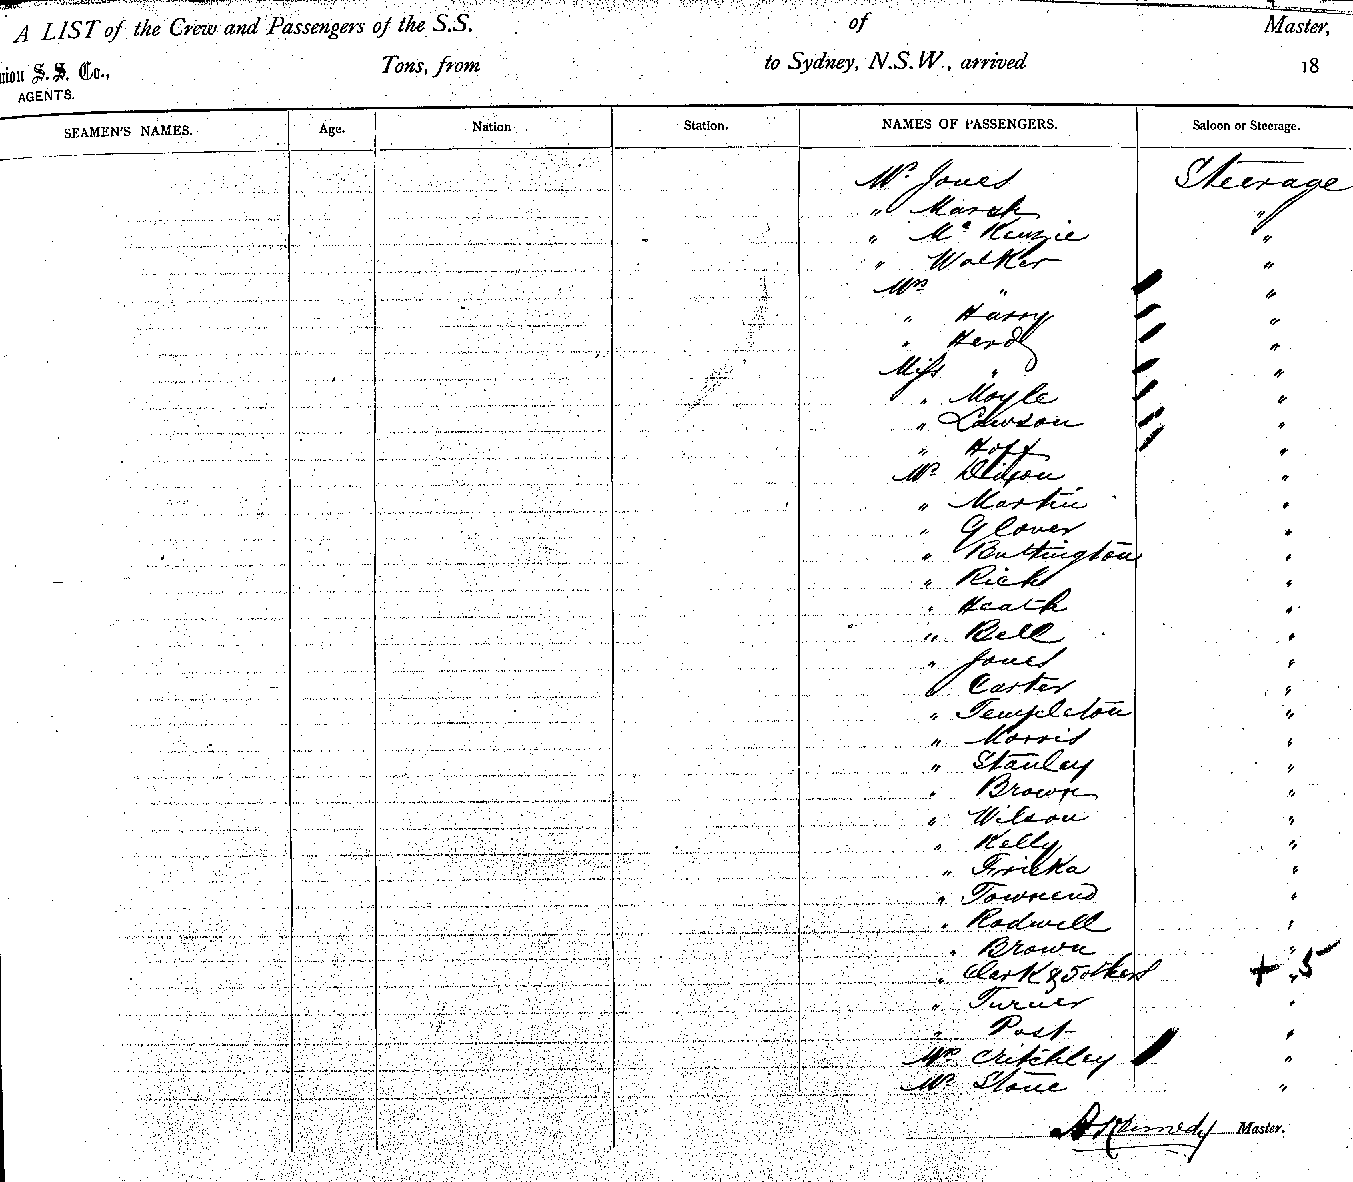 A LIST of the Crew and Passengers of the S.S. of Master,
nion S.S. Co., Tons, from to Sydney, N.S.W., arrived 18
AGENTS.
SEAMEN'S NAMES. Age. Nation Station. NAMES OF PASSENGERS. Saloon or Steerage.
Mr Jones Steerage
" Marsh "
" McKenzie "
" Walker "
Mrs " "
" Harry "
" Herd "
Miss " "
" Moyle "
" Lawson "
" Hoft "
Mr Dixon "
" Martin "
" Glover "
" Buttington "
" Rich "
" Heath "
" Bell "
" Jones "
" Carter "
" Templeton "
" Morris "
" Stanley "
" Brown "
" Wilson "
" Kelly "
" "
" Townend "
" Rodwell "
" Brown "
" Clerk & 5 others + " 5
" Turner "
" Post "
Mrs Critchley "
Mr Stone "
A Kennedy Master.